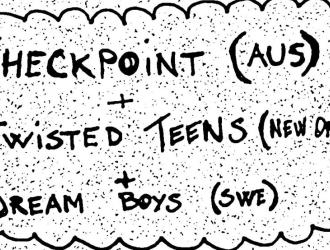 HECKPOINT (AUS)
+
WISTED TEENS (NEW OR
+
DREAM BOYS (SWE)